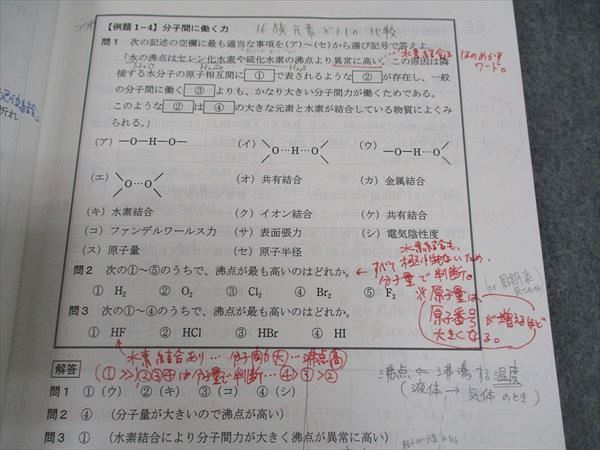 【例題1-4】分子間に働く力
16族元素どうしの比較
問1 次の記述の空欄に最も適当な事項を(ア)〜(セ)から選び記号で答えよ。
水素結合は
ワード。
「水の沸点はセレン化水素や硫化水素の沸点より異常に高い。この原因は隣
H₂O H₂Se H₂S
接する水分子の原子相互間に ① で表されるような ② が存在し、一般
の分子間に働く ③ よりも、かなり大きい分子間力が働くためである。
このような ② は ④ の大きな元素と水素が結合している物質によくみ
られる。」
(ア) —O—H—O— (イ) O…H…O (ウ) —O—H…O
(エ) O…O (オ) 共有結合 (カ) 金属結合
(キ) 水素結合 (ク) イオン結合 (ケ) 共有結合
(コ) ファンデルワールス力 (サ) 表面張力 (シ) 電気陰性度
(ス) 原子量 (セ) 原子半径
水素結合も、
極性もないため、
問2 次の①〜⑤のうちで、沸点が最も高いのはどれか。 ← すべて分子量で判断。
① H₂ ② O₂ ③ Cl₂ ④ Br₂ ⑤ F₂
※原子量は、
原子番号が増えるほど
大きくなる。
問3 次の①〜④のうちで、沸点が最も高いのはどれか。
① HF ② HCl ③ HBr ④ HI
水素結合あり…分子間力(大)…沸点(高)
(①≫)②③④は分子量で判断…④>③>②
解答
沸点 ← 沸騰する温度
(液体 → 気体のとき)
問1 ① (ウ) ② (キ) ③ (コ) ④ (シ)
問2 ④ (分子量が大きいので沸点が高い)
問3 ① (水素結合により分子間力が大きく沸点が異常に高い)